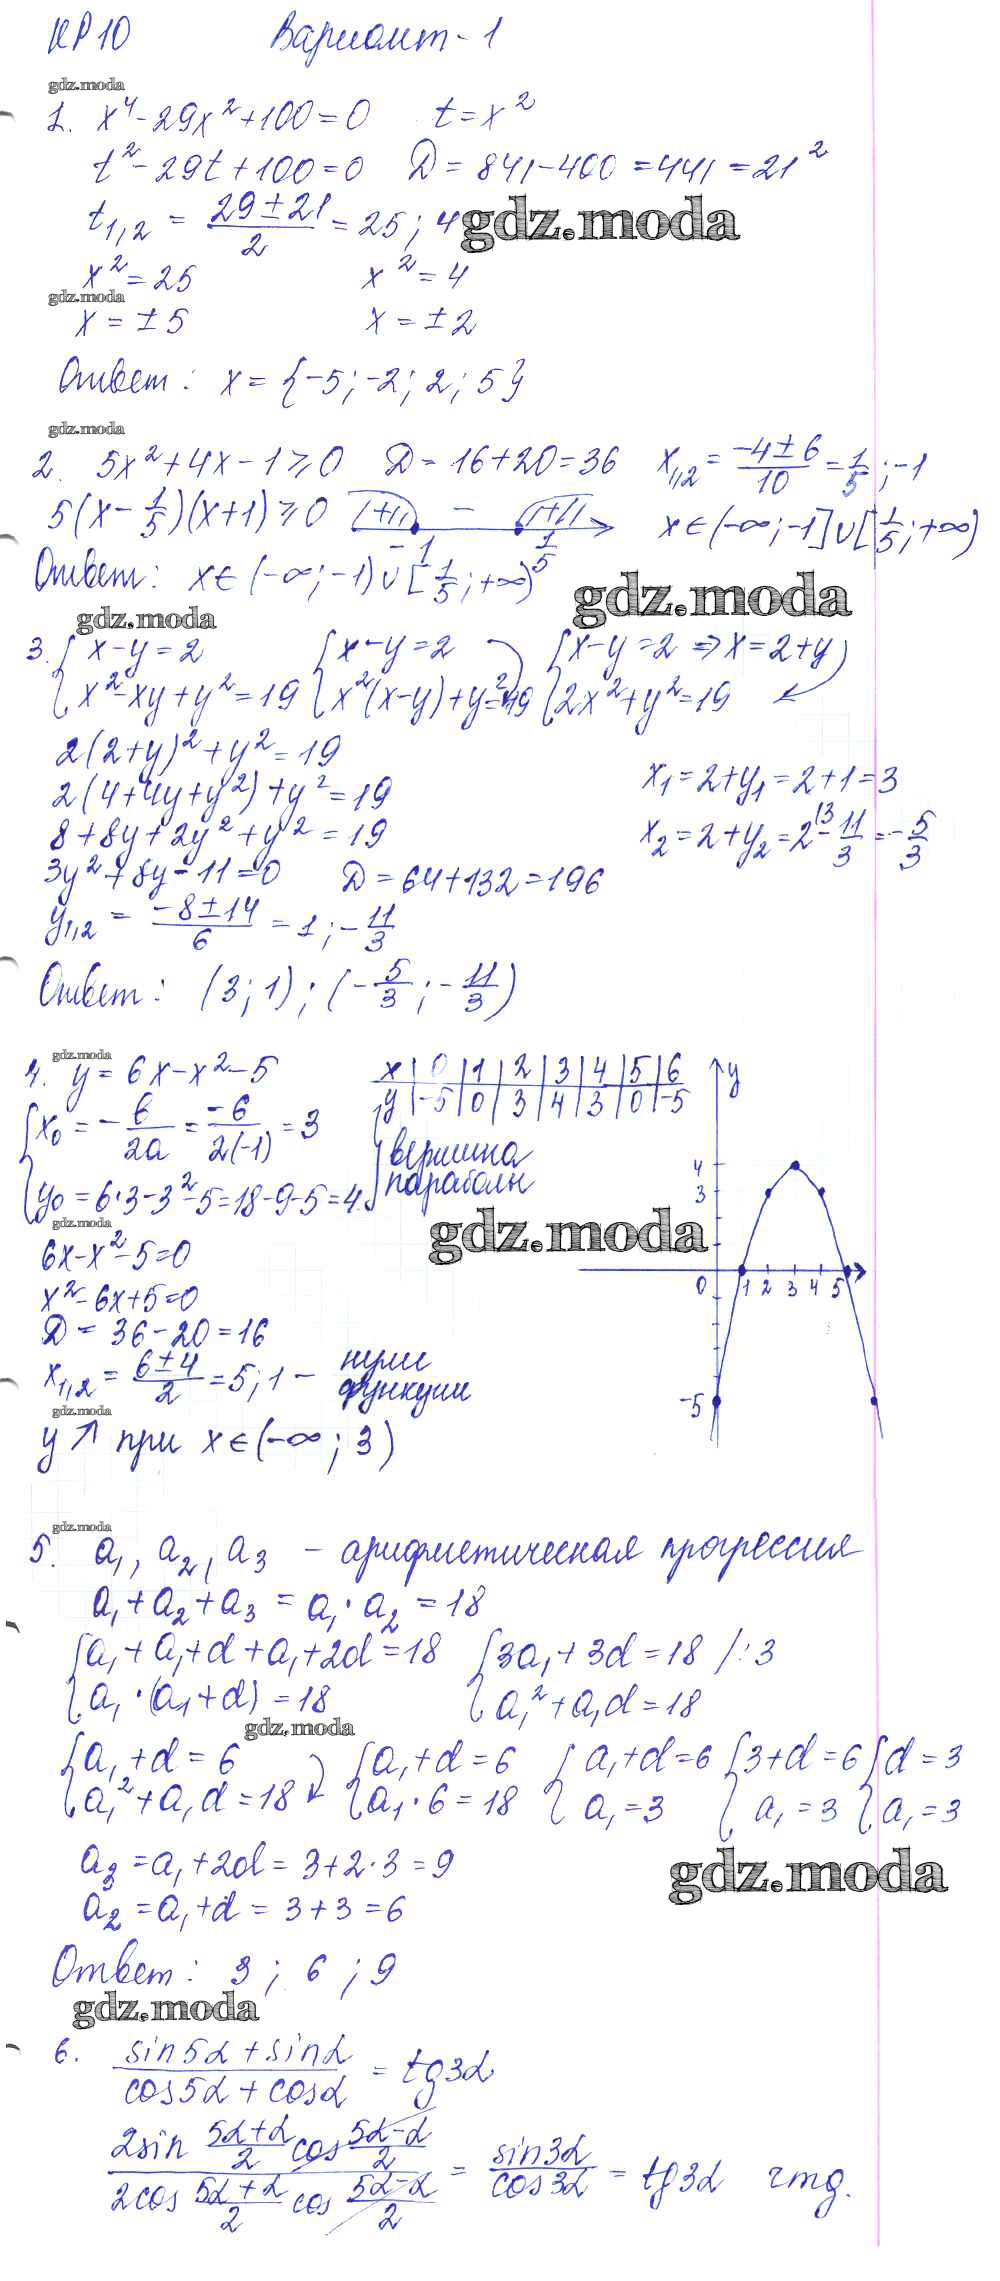 КР 10 Вариант - 1
gdz.moda
1. x⁴ - 29x² + 100 = 0 t = x²
t² - 29t + 100 = 0 Д = 841 - 400 = 441 = 21²
t₁,₂ = (29 ± 21)/2 = 25 ; 4
gdz.moda
x² = 25 x² = 4
gdz.moda
x = ± 5 x = ± 2
Ответ: x = {-5; -2; 2; 5}
gdz.moda
2. 5x² + 4x - 1 ≥ 0 Д = 16 + 20 = 36 x₁,₂ = (-4 ± 6)/10 = 1/5 ; -1
5(x - 1/5)(x + 1) ≥ 0 + - + -1 1/5 x ∈ (-∞; -1] ∪ [1/5; +∞)
Ответ: x ∈ (-∞; -1) ∪ [1/5; +∞)
gdz.moda
gdz.moda
3. { x - y = 2 { x - y = 2 { x - y = 2 => x = 2 + y
{ x² - xy + y² = 19 { x²(x - y) + y² = 19 { 2x² + y² = 19
2(2 + y)² + y² = 19
2(4 + 4y + y²) + y² = 19 x₁ = 2 + y₁ = 2 + 1 = 3
8 + 8y + 2y² + y² = 19 x₂ = 2 + y₂ = 2 - 11/3 = -5/3
3y² + 8y - 11 = 0 Д = 64 + 132 = 196
y₁,₂ = (-8 ± 14)/6 = 1 ; -11/3
Ответ: (3; 1); (-5/3; -11/3)
gdz.moda
4. y = 6x - x² - 5 x | 0 | 1 | 2 | 3 | 4 | 5 | 6
y | -5 | 0 | 3 | 4 | 3 | 0 | -5
{ x₀ = -6/2a = -6/2(-1) = 3 } вершина
{ y₀ = 6·3 - 3² - 5 = 18 - 9 - 5 = 4 } параболы
gdz.moda
gdz.moda
6x - x² - 5 = 0
x² - 6x + 5 = 0
Д = 36 - 20 = 16
x₁,₂ = (6 ± 4)/2 = 5; 1 - нули функции
gdz.moda
y ↗ при x ∈ (-∞; 3)
y
4
3
0 1 2 3 4 5
-5
gdz.moda
5. a₁, a₂, a₃ - арифметическая прогрессия
a₁ + a₂ + a₃ = a₁ · a₂ = 18
{ a₁ + a₁ + d + a₁ + 2d = 18 { 3a₁ + 3d = 18 / : 3
{ a₁ · (a₁ + d) = 18 { a₁² + a₁d = 18
gdz.moda
{ a₁ + d = 6 { a₁ + d = 6 { a₁ + d = 6 { 3 + d = 6 { d = 3
{ a₁² + a₁d = 18 { a₁ · 6 = 18 { a₁ = 3 { a₁ = 3 { a₁ = 3
a₃ = a₁ + 2d = 3 + 2·3 = 9
gdz.moda
a₂ = a₁ + d = 3 + 3 = 6
Ответ: 3 ; 6 ; 9
gdz.moda
6. (sin5α + sinα)/(cos5α + cosα) = tg3α
(2sin (5α+α)/2 cos (5α-α)/2)/(2cos (5α+α)/2 cos (5α-α)/2) = sin3α/cos3α = tg3α чтд.